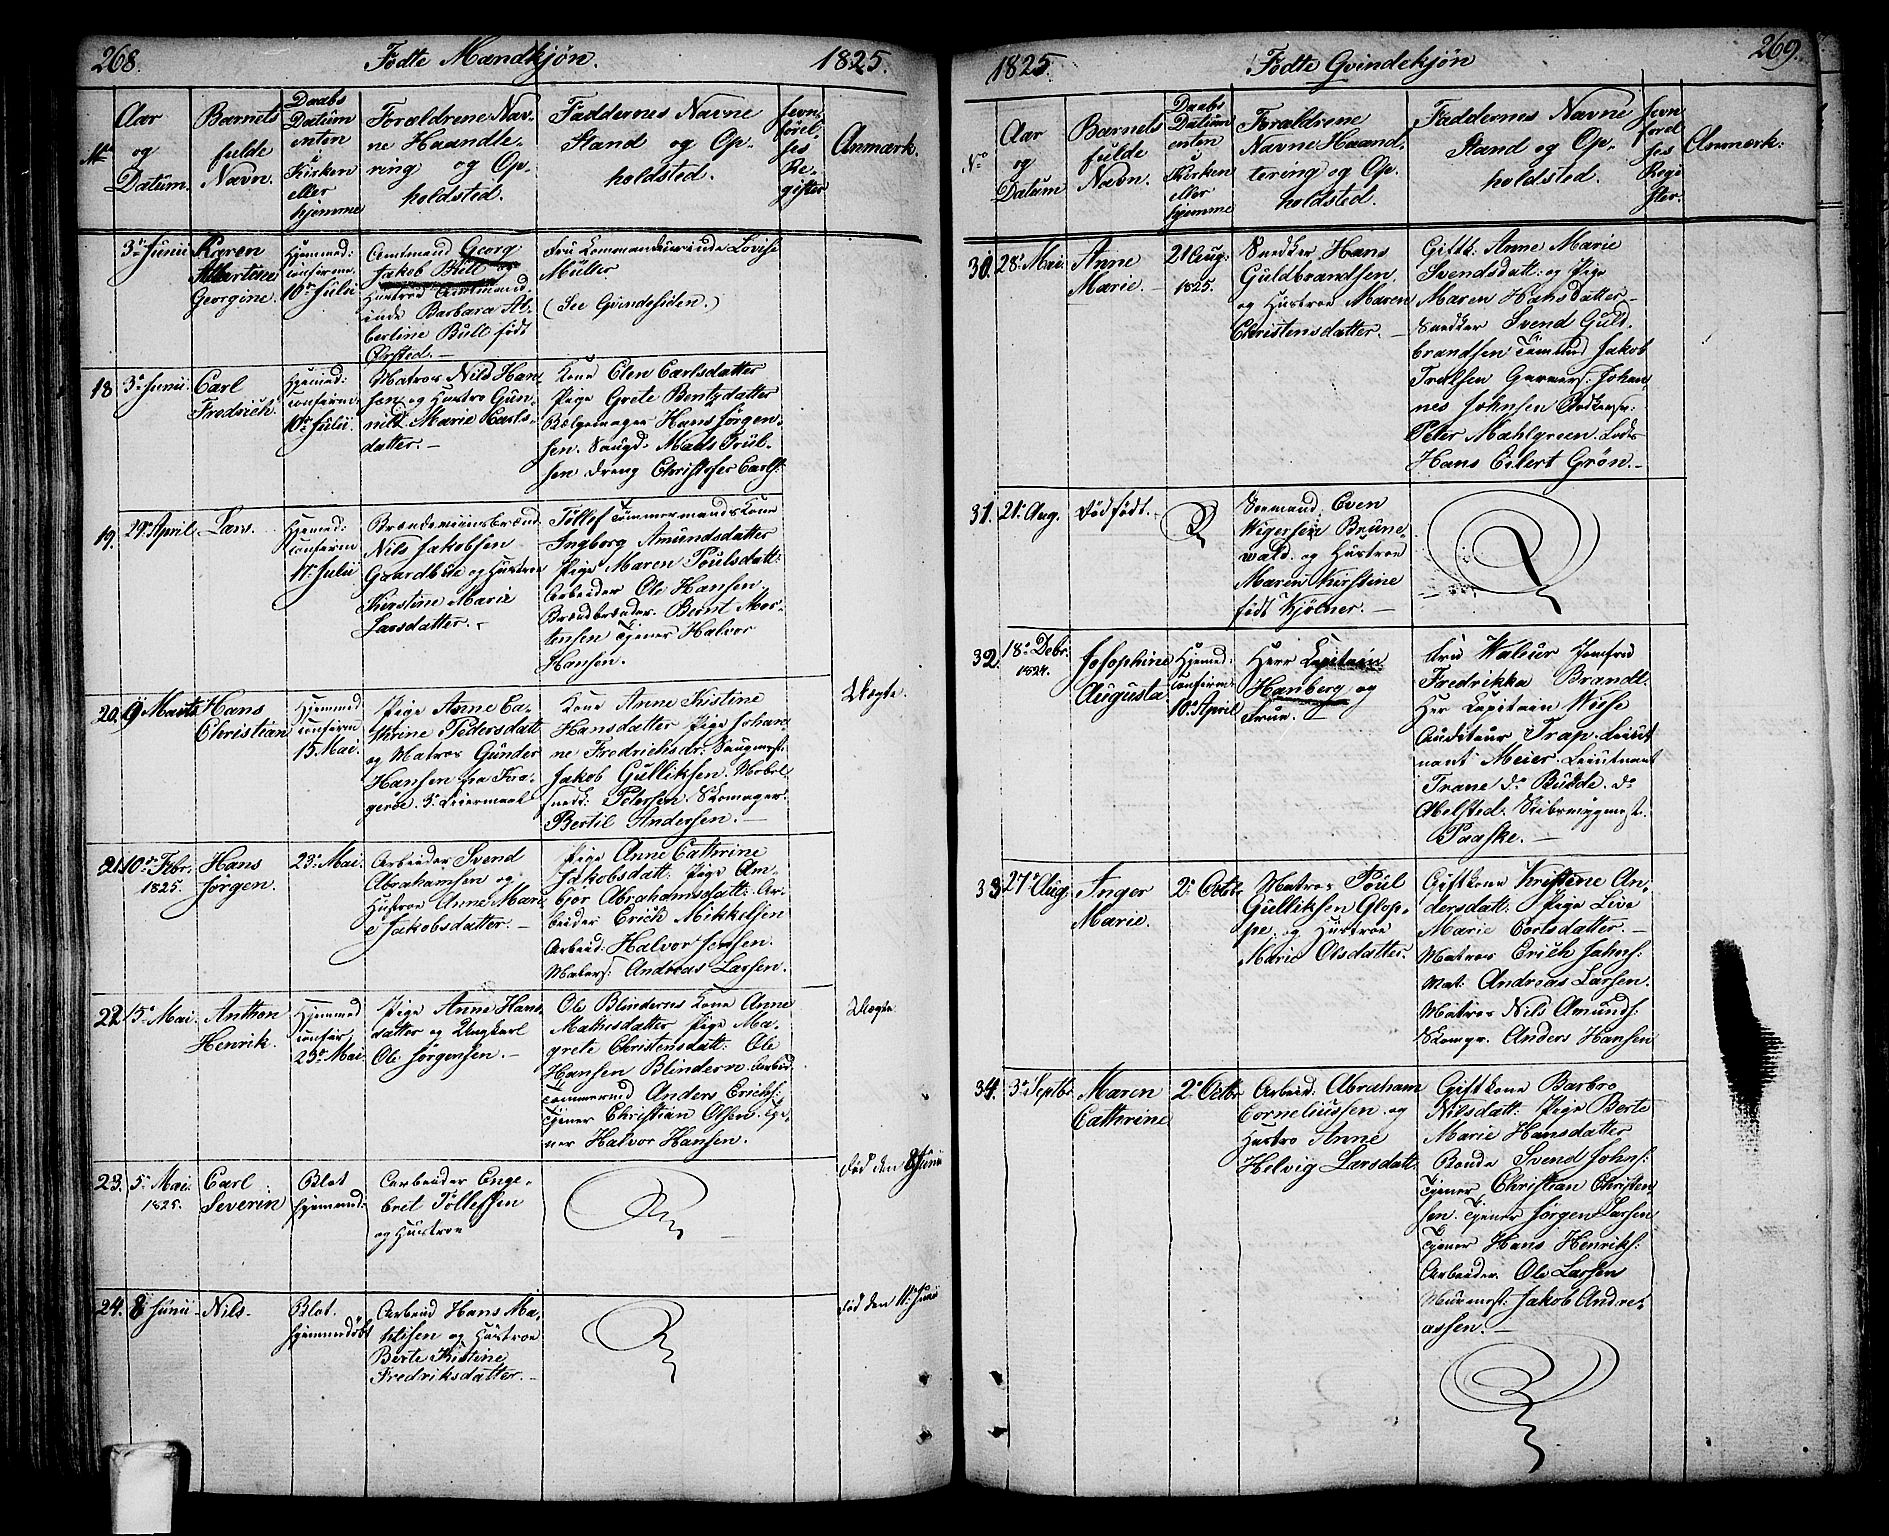 268. Fødte Mandkjøn. 1825.
No
Aar
og
Datum.
Barnets
fulde
Navn.
Daabs
Datum
enten
i
Kirken
eller
hjemme
Forældrene Nav-
ne Haandte-
ring og Op-
holdsted.
Faddernes Navne
Stand og Op-
holdsted.
Jevn-
førel-
ses
Re-
gister
Anmærk.
3de Junii
Karen
Albertine
Georgine.
Hjemmed:
conferm:
10de Julii
Amtmand Georg
Jakob Bull og
Hustroe Amtmand
inde Barbara Al-
bertine Bull født
Ørsted.
Fru Kommandeurinde Lovise
Müller
(See Qvindesiden.)
18
3de Junii
Carl
Fredrich.
Hjemmed:
conferm:
10de Julii
Matros Nils Han-
sen og Hustro Gun-
nild Marie
datter.
Kone Elen Carlsdatter
Pige Grete Bentsdatter
Hans Jørgen-
sen. Saugd: Mads Trul-
sen Dreng Christofer Carls:
19.
29de April
Lars.
Hjemmed:
conferm
17de Julii
Nils Jakobsen
og Hustroe
Kirstine Marie
Larsdatter.
Tollef Tømmermands Kone
Ingborg Amundsdatter
Pige Maren Poulsdatt:
Arbeider Ole Hansen
Brændbrænder Bernt Mor-
tensen Tjener Halvor
Hansen.
20.
9 Marts
Hans
Christian
Hjemmed
conferm
15 Mai.
Pige Anne Ca-
thrine Pedersdatt
og Matros Gunder
Hansen fra Kra-
gerøe. 3de Leiermaal
Kone Anne Kistine
Hansdatter Pige Johan
ne Fredrichsdr: Saugmest:
Jakob Gulliksen. Møbel
snedk: Petersen. Skomager:
Bertil Andersen.
Uægte.
21.
10de Febr.
1825.
Hans
Jørgen.
23de Mai.
Arbeider Svend
Abrahamsen og
Hustroe Anne Mari
e Jakobsdatter.
Pige Anne Cathrine
Jakobsdatt: Pige Am-
bjør Abrahamsdatt: Ar-
beider Erich Mikkelsen
Arbeid: Halvor Jensen.
Malers: Andreas Larsen.
22.
15de Mai.
Anthon
Henrik.
Hjemmed
confir:
23de Mai.
Pige Anne Hans
datter og Ungkarl
Ole Jørgensen.
Ole Blinderns Kone Anne
Mathisdatter Pige Ma-
grete Christensdatt: Ole
Hansen Blindern. Arbeid:
Tømmermd Anders Erichs:
Tjener Christian Olsen. Tje-
ner Halvor Hansen.
Uægte
23.
5te Mai.
1825.
Carl
Severin
Blot
hjemmed:
Arbeider Enge-
bret Tollefsen
og Hustroe
død den 8 Junii
24.
8 Junii
Nils.
Blot.
hjemmedøbt
Arbeid Hans Ma-
thisen og Hustroe
Berte Kistine
Fredriksdatter.
død den 11te Junii
1825. Fødte Qvindekjøn 269.
No
Aar
og
Datum
Barnets
fulde
Navn.
Daabs
Datum
enten
i Kirken
eller
hjemme
Forældrene
Navne Haand-
tering og Op-
holdsted.
Faddernes Navne
Stand og Op-
holdsted.
Jevn
førel
ses
Regi
ster.
Anmærk:
30.
28. Mai.
Anne
Marie.
21 Aug:
1825.
Snedker Hans
Guldbrandsen.
og Hustroe Maren
Christensdatter.
Giftk: Anne Marie
Svendsdatt: og Pige
Maren Hansdatter
Snedker Svend Guld-
brandsen Tømmd Jakob
Trulsen Garvers: Johan
nes Johnsen
Peter Mahlgreen. Lods
Hans Eilert Grøn.
31.
21de Aug.
Dødfødt.
Formand Even
Wigersen Brune-
wald og Hustroe
Maren Kirstine
født Kjølner.
32.
18de Debr.
1824.
Josephine
Augusta
Hjemmed:
conferm:
10de April
Herr Kapitain
Hanberg og
Frue.
Fru Waleur Jomfru
Fredrikke Brandt.
Her Kapitain Wiese
Auditeur Trap. Lieut
nant Meier. Lieutnant
Trane do Budde. do
Abelsted.
Paaske.
33.
27de Aug.
Inger
Marie.
2de Octbr
Matros Poul
Gulliksen Glop-
pe. og Hustroe
Marie Olsdatter.
Giftkone Kristine An-
dersdatt: Pige Live
Marie Corlsdatter.
Matros Erich Johns:
Mat: Andrias Larsen.
Matros Nils Amunds:
Skomgr. Anders Hansen
34.
3de Septbr
Maren
Cathrine
2de Octbr
Arbeid. Abraham
Corneliussen og
Hustro Anne
Helvig Larsdatt:
Giftkone Barbro
Nilsdatt: Pige Berte
Marie Hansdatter
Bonde Svend Johns:
Tjener Christian Christen
sen. Tjener Jørgen Larsen
Tjener Hans Henriks:
Arbeider. Ole Larsen
Murmest: Jakob Andre-
assen.